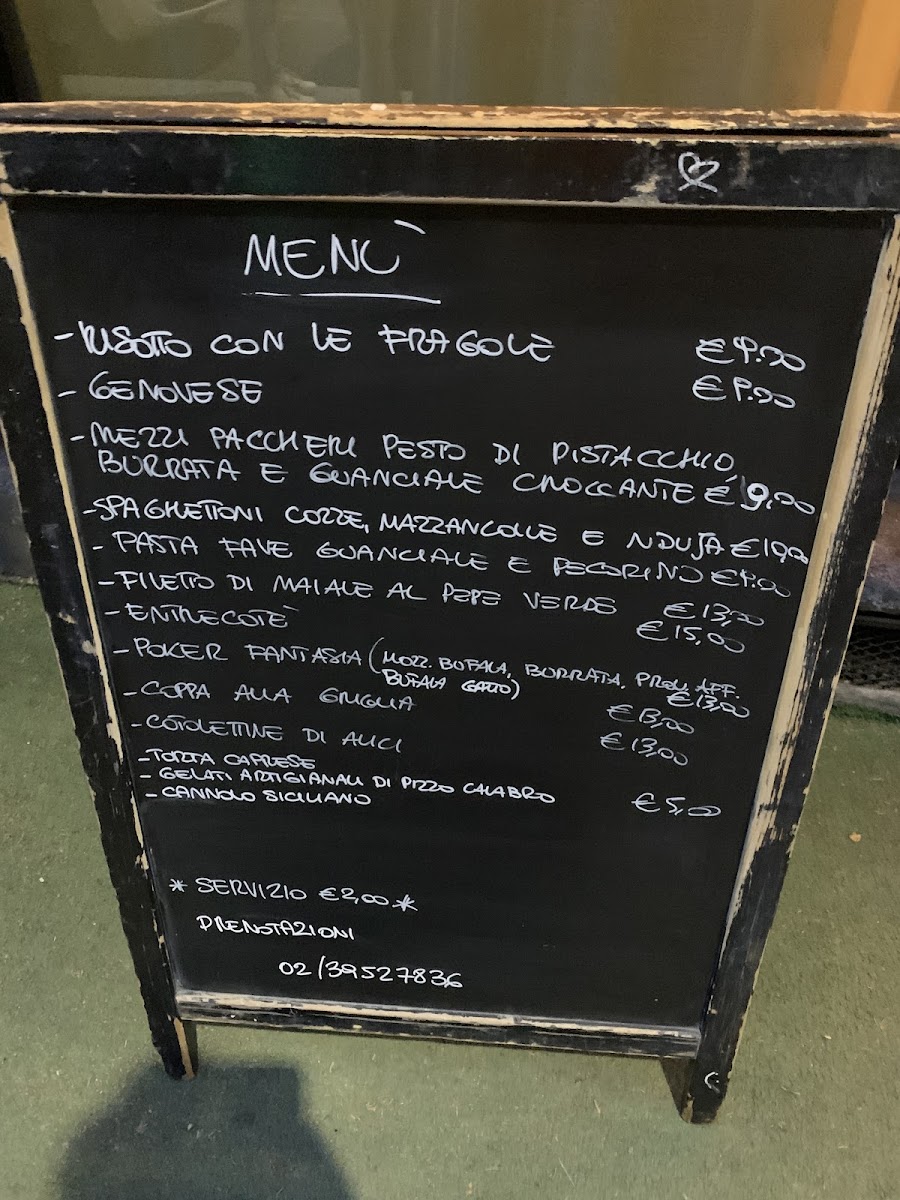 MENÙ
- RISOTTO CON LE FRAGOLE €9.00
- GENOVESE €9.00
- MEZZI PACCHERI PESTO DI PISTACCHIO,
BURRATA E GUANCIALE CROCCANTE € 9,00
- SPAGHETTONI COZZE, MAZZANCOLLE E NDUJA €10,00
- PASTA FAVE GUANCIALE E PECORINO €9.00
- FILETTO DI MAIALE AL PEPE VERDE €13,00
- ENTRECOTÈ €15,00
- POKER FANTASIA (MOZZ. BUFALA, BURRATA, PROV. AFF.
BUFALA COTTO) €13,00
- COPPA ALLA GRIGLIA €13,00
- COTOLETTINE DI ALICI €13,00
- TORTA CAPRESE
- GELATI ARTIGIANALI DI PIZZO CALABRO
- CANNOLO SICILIANO €5,00
* SERVIZIO €2,00 *
PRENOTAZIONI
02/39527836